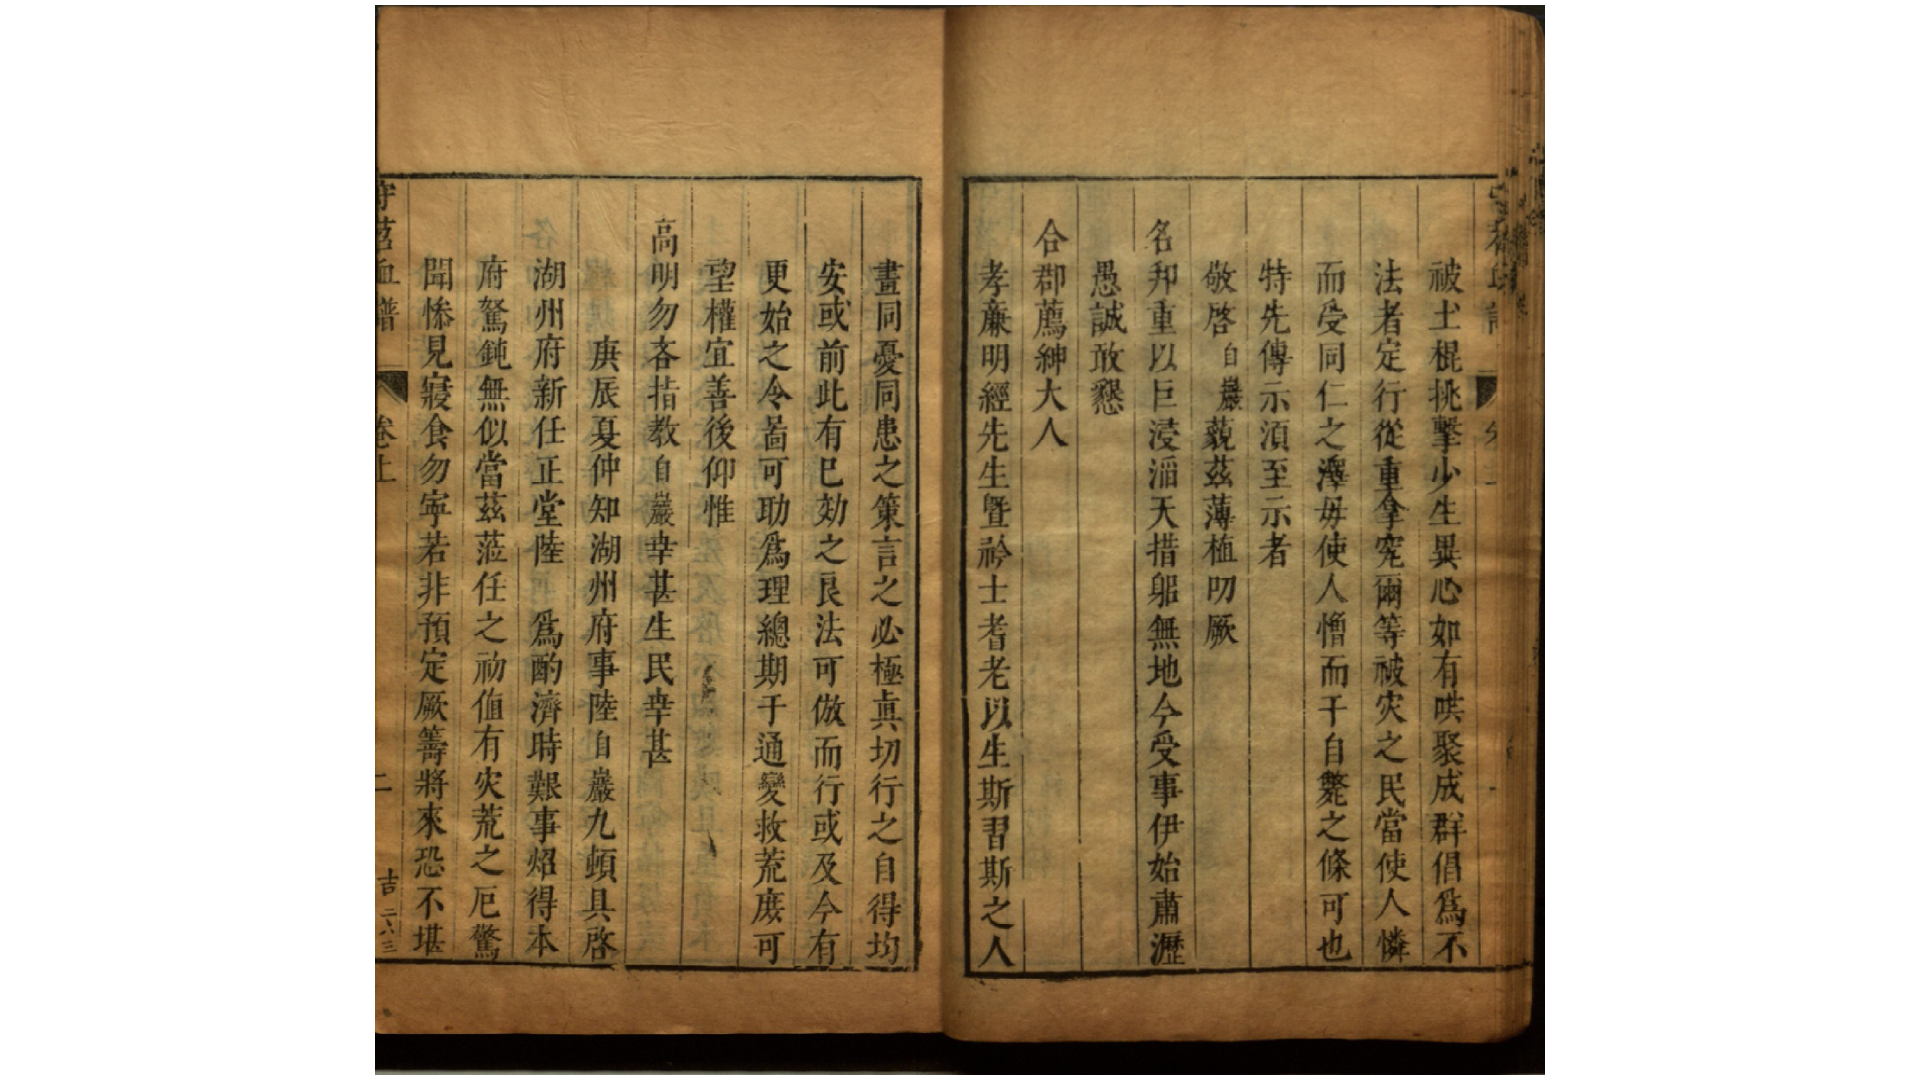 被土棍挑擊少生異心如有哄聚成群倡爲不
法者定行從重拿究爾等被灾之民當使人憐
而受同仁之澤毋使人憎而干自斃之條可也
特先傳示湏至示者
敬啓自巖藐茲薄植叨厥
名邦重以巨浸滔天措躬無地今受事伊始肅瀝
愚誠敢懇
合郡薦紳大人
孝亷明經先生曁衿士耆老以生斯習斯之人
畫同憂同患之策言之必極真切行之自得均
安或前此有巳効之良法可倣而行或及今有
更始之令啚可助爲理總期于通變救荒庻可
望權宜善後仰惟
高明勿吝指教自巖幸甚生民幸甚
庚辰夏仲知湖州府事陸自巖九頓具啓
湖州府新任正堂陸 爲酌濟時艱事炤得本
府駑鈍無似當茲蒞任之初値有灾荒之厄驚
聞慘見寢食勿寧若非預定厥籌將來恐不堪
卷上
二
吉 六三